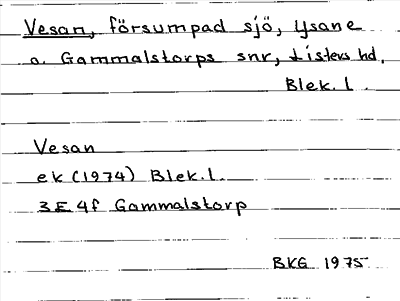 Vesan, försumpad sjö, Ysane
o. Gammalstorps snr, Listers hd,
Blek. l.
Vesan
ek (1974) Blek. l.
3E 4f Gammalstorp
BKG 1975